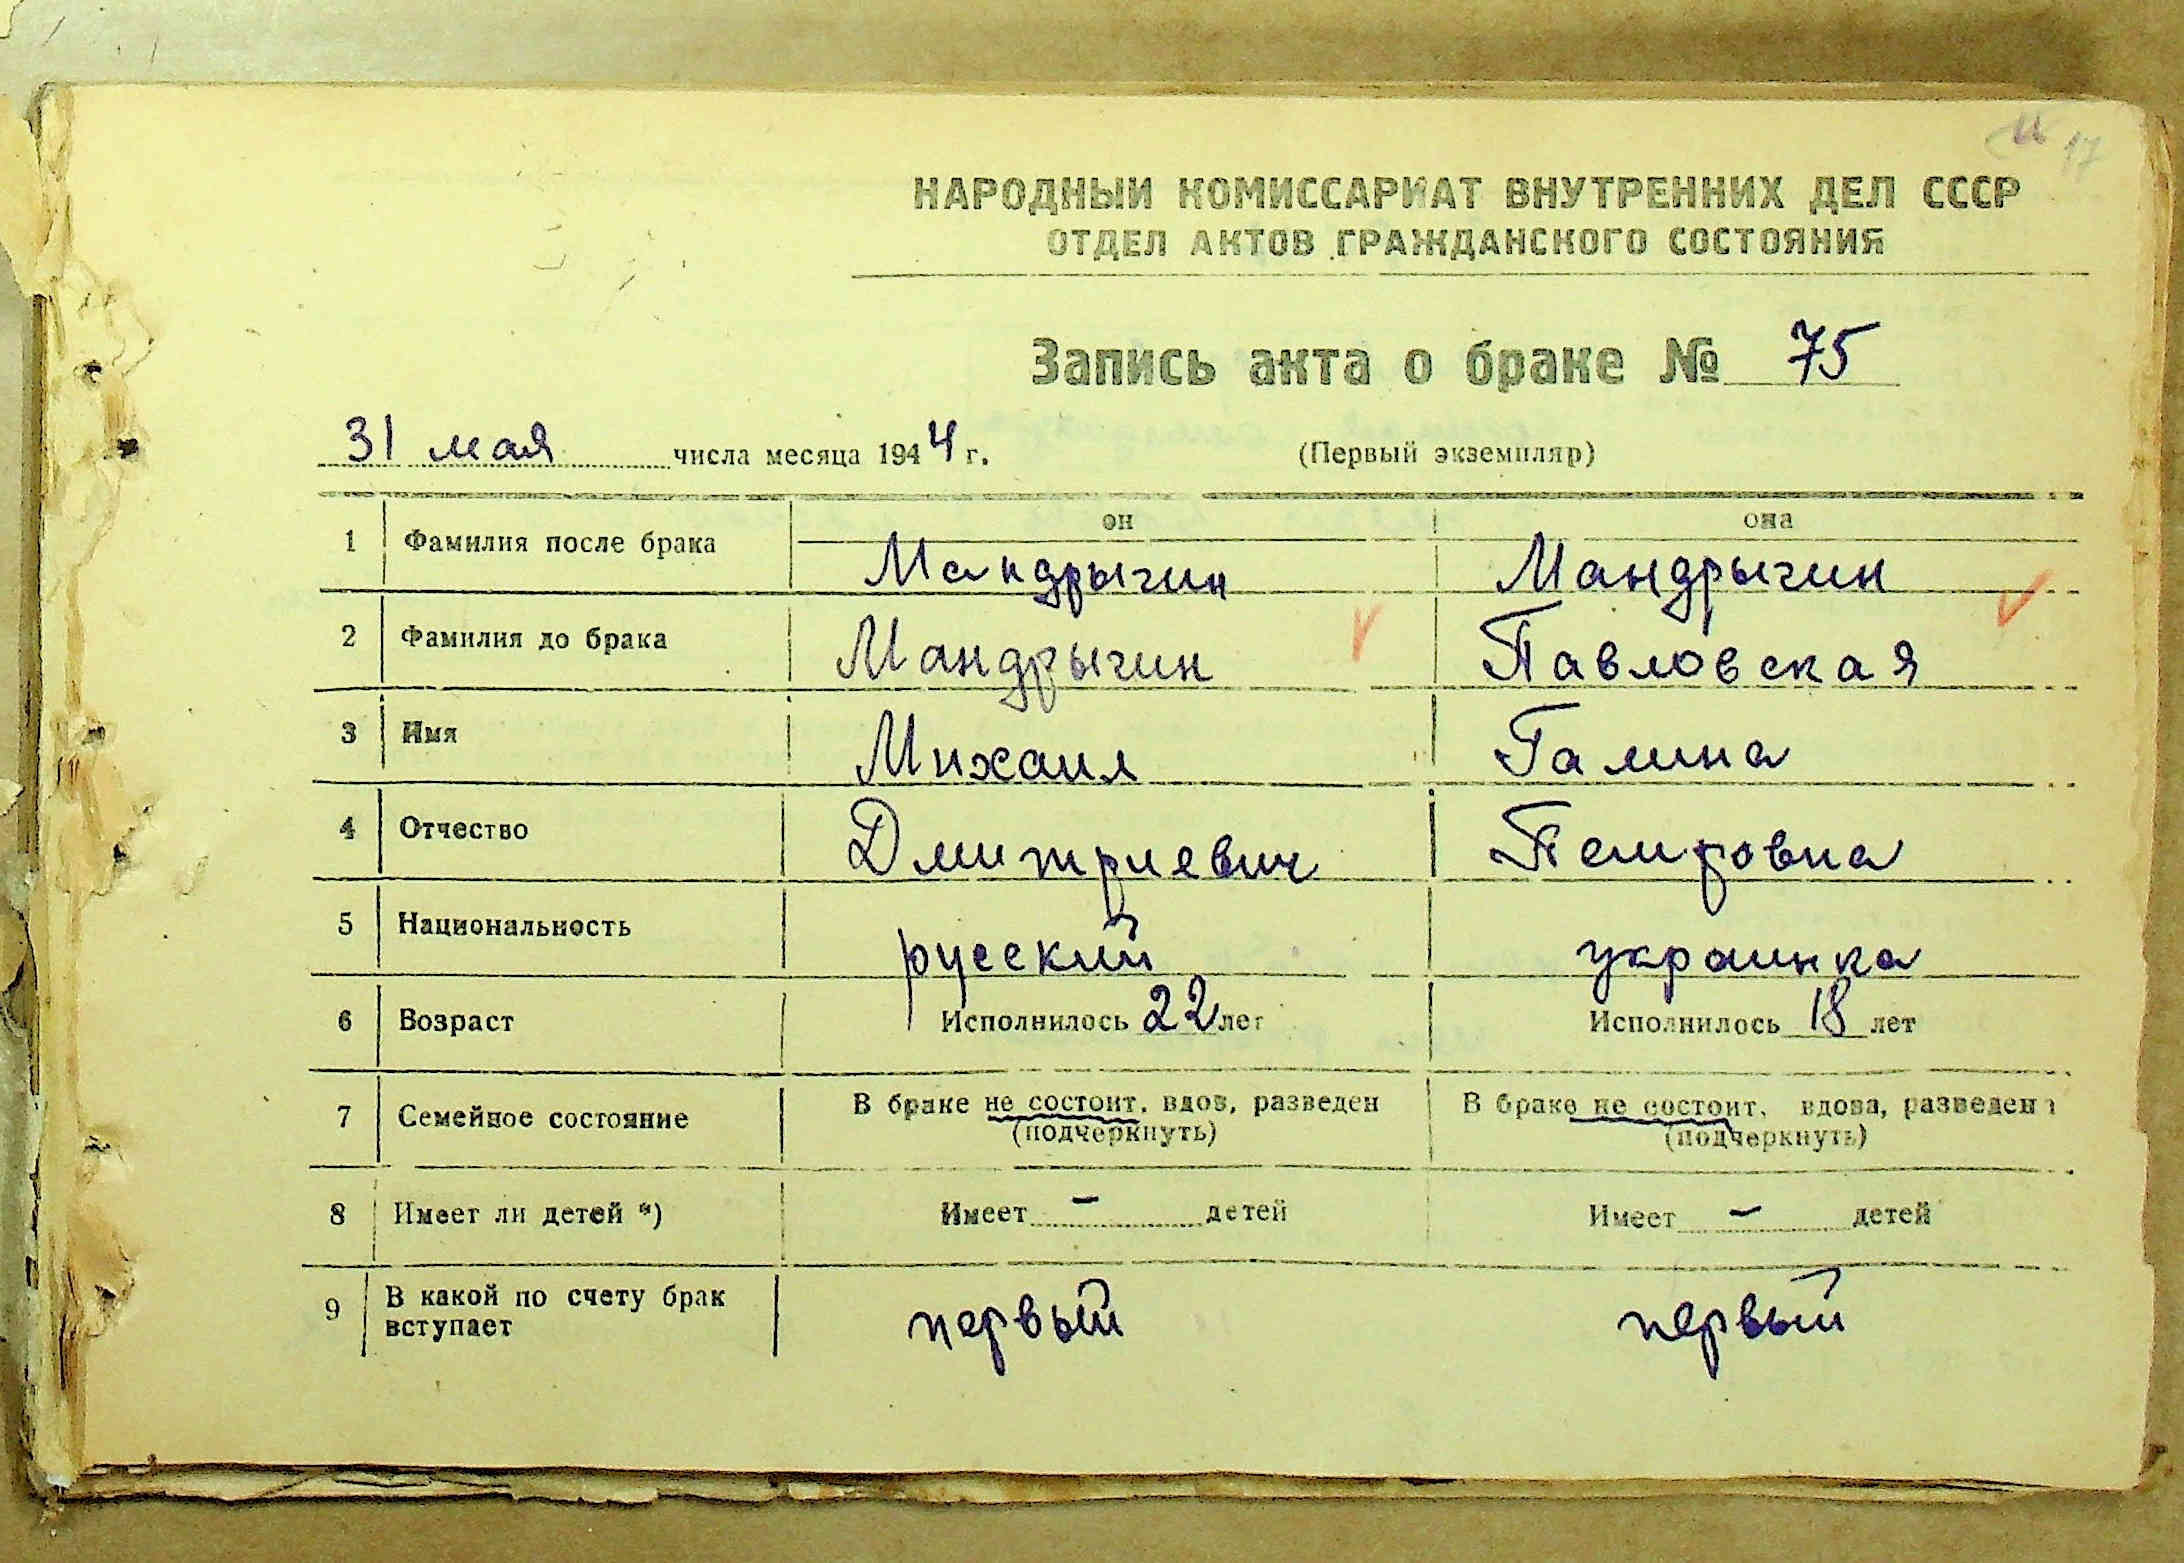 17
НАРОДНЫЙ КОМИССАРИАТ ВНУТРЕННИХ ДЕЛ СССР
ОТДЕЛ АКТОВ ГРАЖДАНСКОГО СОСТОЯНИЯ
Запись акта о браке № 75
31 мая числа месяца 1944 г. (Первый экземпляр)
он она
1 Фамилия после брака Мандрыгин Мандрыгин
2 Фамилия до брака Мандрыгин Павловская
3 Имя Михаил Галина
4 Отчество Дмитриевич Петровна
5 Национальность русский украинка
6 Возраст Исполнилось 22 лет Исполнилось 18 лет
7 Семейное состояние В браке не состоит, вдов, разведен В браке не состоит, вдова, разведена
(подчеркнуть) (подчеркнуть)
8 Имеет ли детей *) Имеет - детей Имеет - детей
9 В какой по счету брак вступает первый первый